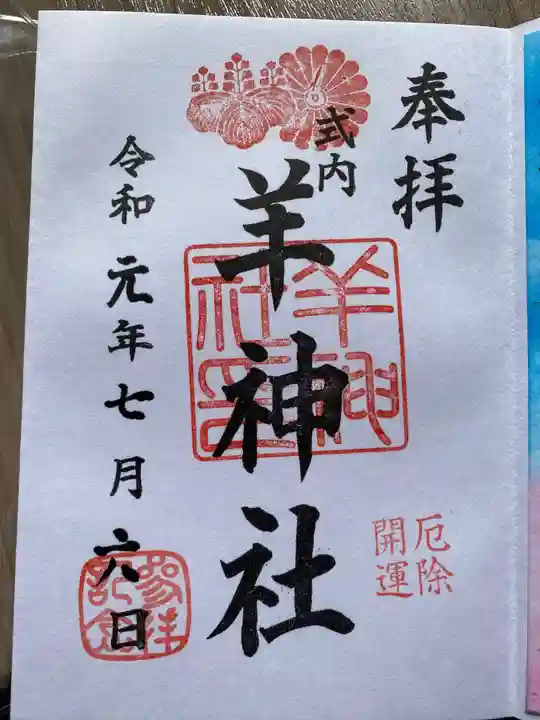 奉拝
式内
羊神社
羊神社印
厄除
開運
令和元年七月六日
参拝記念